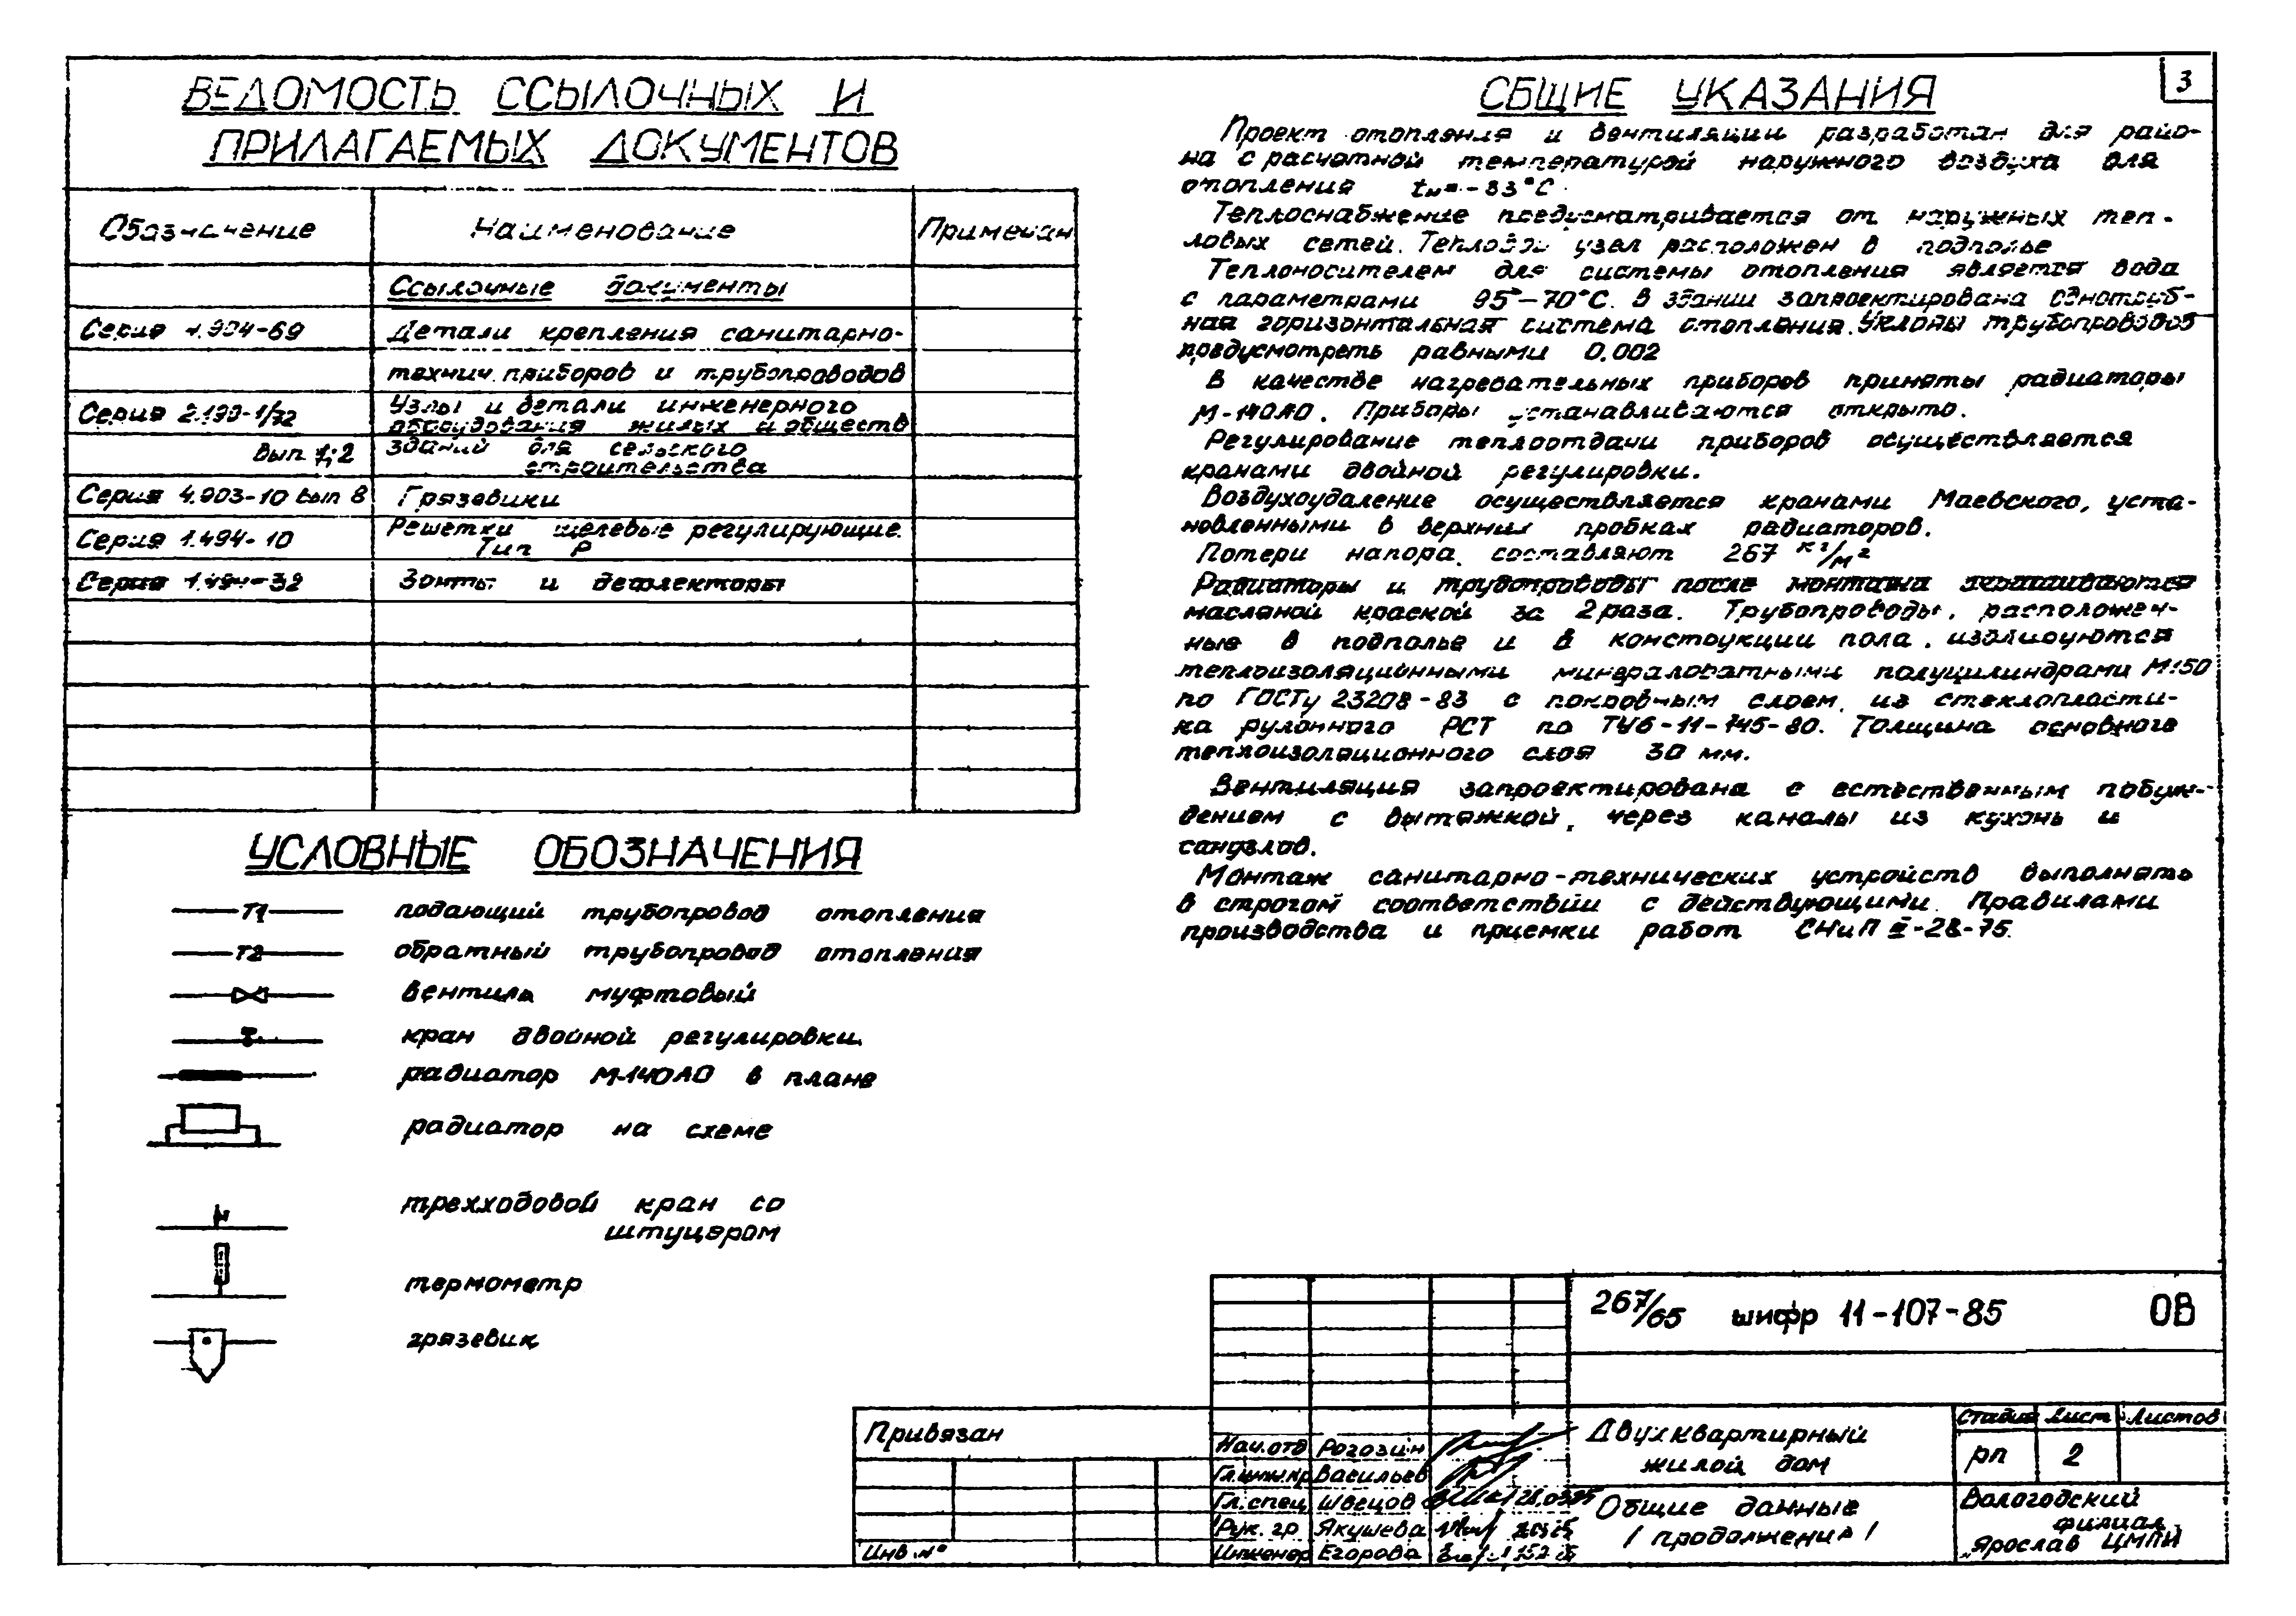 ВЕДОМОСТЬ ССЫЛОЧНЫХ И
ПРИЛАГАЕМЫХ ДОКУМЕНТОВ
Обозначение Наименование Примечан
Ссылочные документы
Серия 4.904-69 Детали крепления санитарно-
технич. приборов и трубопроводов
Серия 2.190-1/72 Узлы и детали инженерного
оборудования жилых и обществ
Вып 1;2 зданий для сельского
строительства
Серия 4.903-10 вып 8 Грязевики
Серия 1.494-10 Решетки щелевые регулирующие.
Тип Р
Серия 1.494-32 Зонты и дефлекторы
УСЛОВНЫЕ ОБОЗНАЧЕНИЯ
Т1 подающий трубопровод отопления
Т2 обратный трубопровод отопления
вентиль муфтовый
кран двойной регулировки.
радиатор М-140АО в плане
радиатор на схеме
трехходовой кран со
штуцером
термометр
грязевик
3
ОБЩИЕ УКАЗАНИЯ
Проект отопления и вентиляции разработан для райо-
на с расчетной температурой наружного воздуха для
отопления tн=-33°С.
Теплоснабжение предусматривается от наружных теп-
ловых сетей. Тепловой узел расположен в подполье
Теплоносителем для системы отопления является вода
с параметрами 95°-70°С. В здании запроектирована однотруб-
ная горизонтальная система отопления. Уклоны трубопроводов
предусмотреть равными 0,002
В качестве нагревательных приборов приняты радиаторы
М-140АО. Приборы устанавливаются открыто.
Регулирование теплоотдачи приборов осуществляется
кранами двойной регулировки.
Воздухоудаление осуществляется кранами Маевского, уста-
новленными в верхних пробках радиаторов.
Потери напора составляют 267 кг/м²
Радиаторы и трубопроводы после монтажа окрашиваются
масляной краской за 2 раза. Трубопроводы, расположен-
ные в подполье и в конструкции пола, изолируются
теплоизоляционными минераловатными полуцилиндрами М150
по ГОСТу 23208-83 с покровным слоем из стеклопласти-
ка рулонного РСТ по ТУ6-11-145-80. Толщина основного
теплоизоляционного слоя 30 мм.
Вентиляция запроектирована с естественным побуж-
дением с вытяжкой, через каналы из кухонь и
санузлов.
Монтаж санитарно-технических устройств выполнять
в строгом соответствии с действующими Правилами
производства и приемки работ СНиП III-28-75.
267/65 шифр 11-107-85 ОВ
Привязан
Инв №
Нач.отд Рогозин
Гл.инж.пр Васильев
Гл.спец Швецов
Рук. гр Якушева
Инженер Егорова
Двухквартирный
жилой дом
Стадия Лист Листов
рп 2
Общие данные
/продолжение/
Вологодский
филиал
„Ярослав ЦМПИ